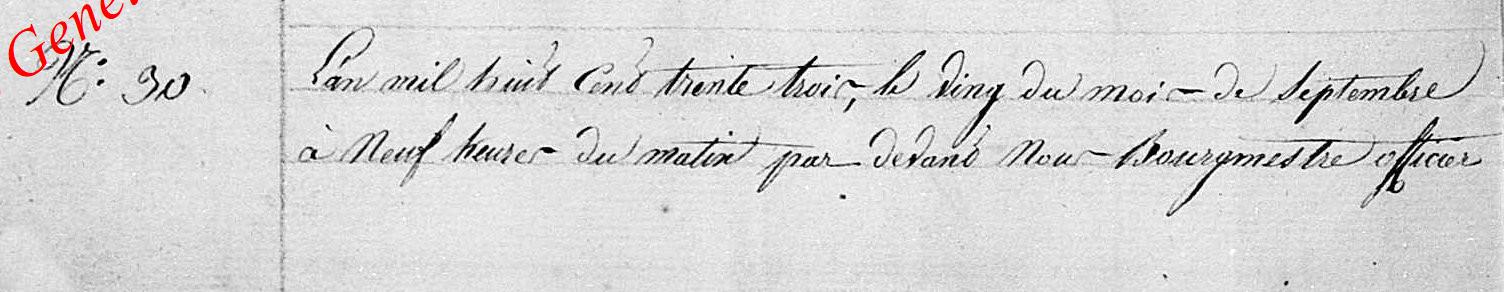 Gene
N.º 30. L'an mil huit cent trente trois, le ving du mois de Septembre
à Neuf heures du matin par devant Nous Bourgmestre officier